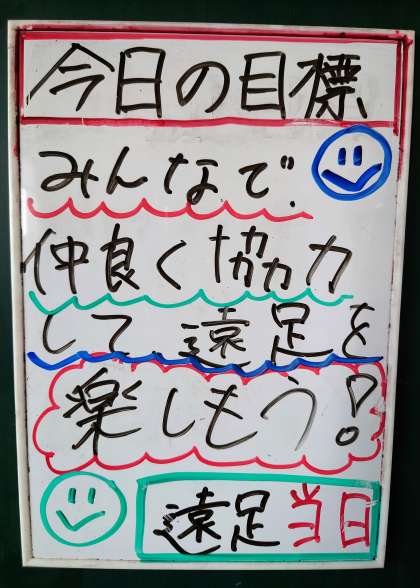 今日の目標
みんなで、
仲良く協力
して遠足を
楽しもう!
遠足当日